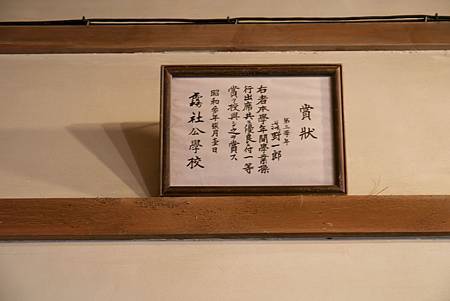 賞狀
第三學年
花野一郎
右者本學年間學業操
行出席共ニ優良ニ付一等
賞ヲ授與シ之ヲ賞ス
昭和參年 月 日
霧社公學校